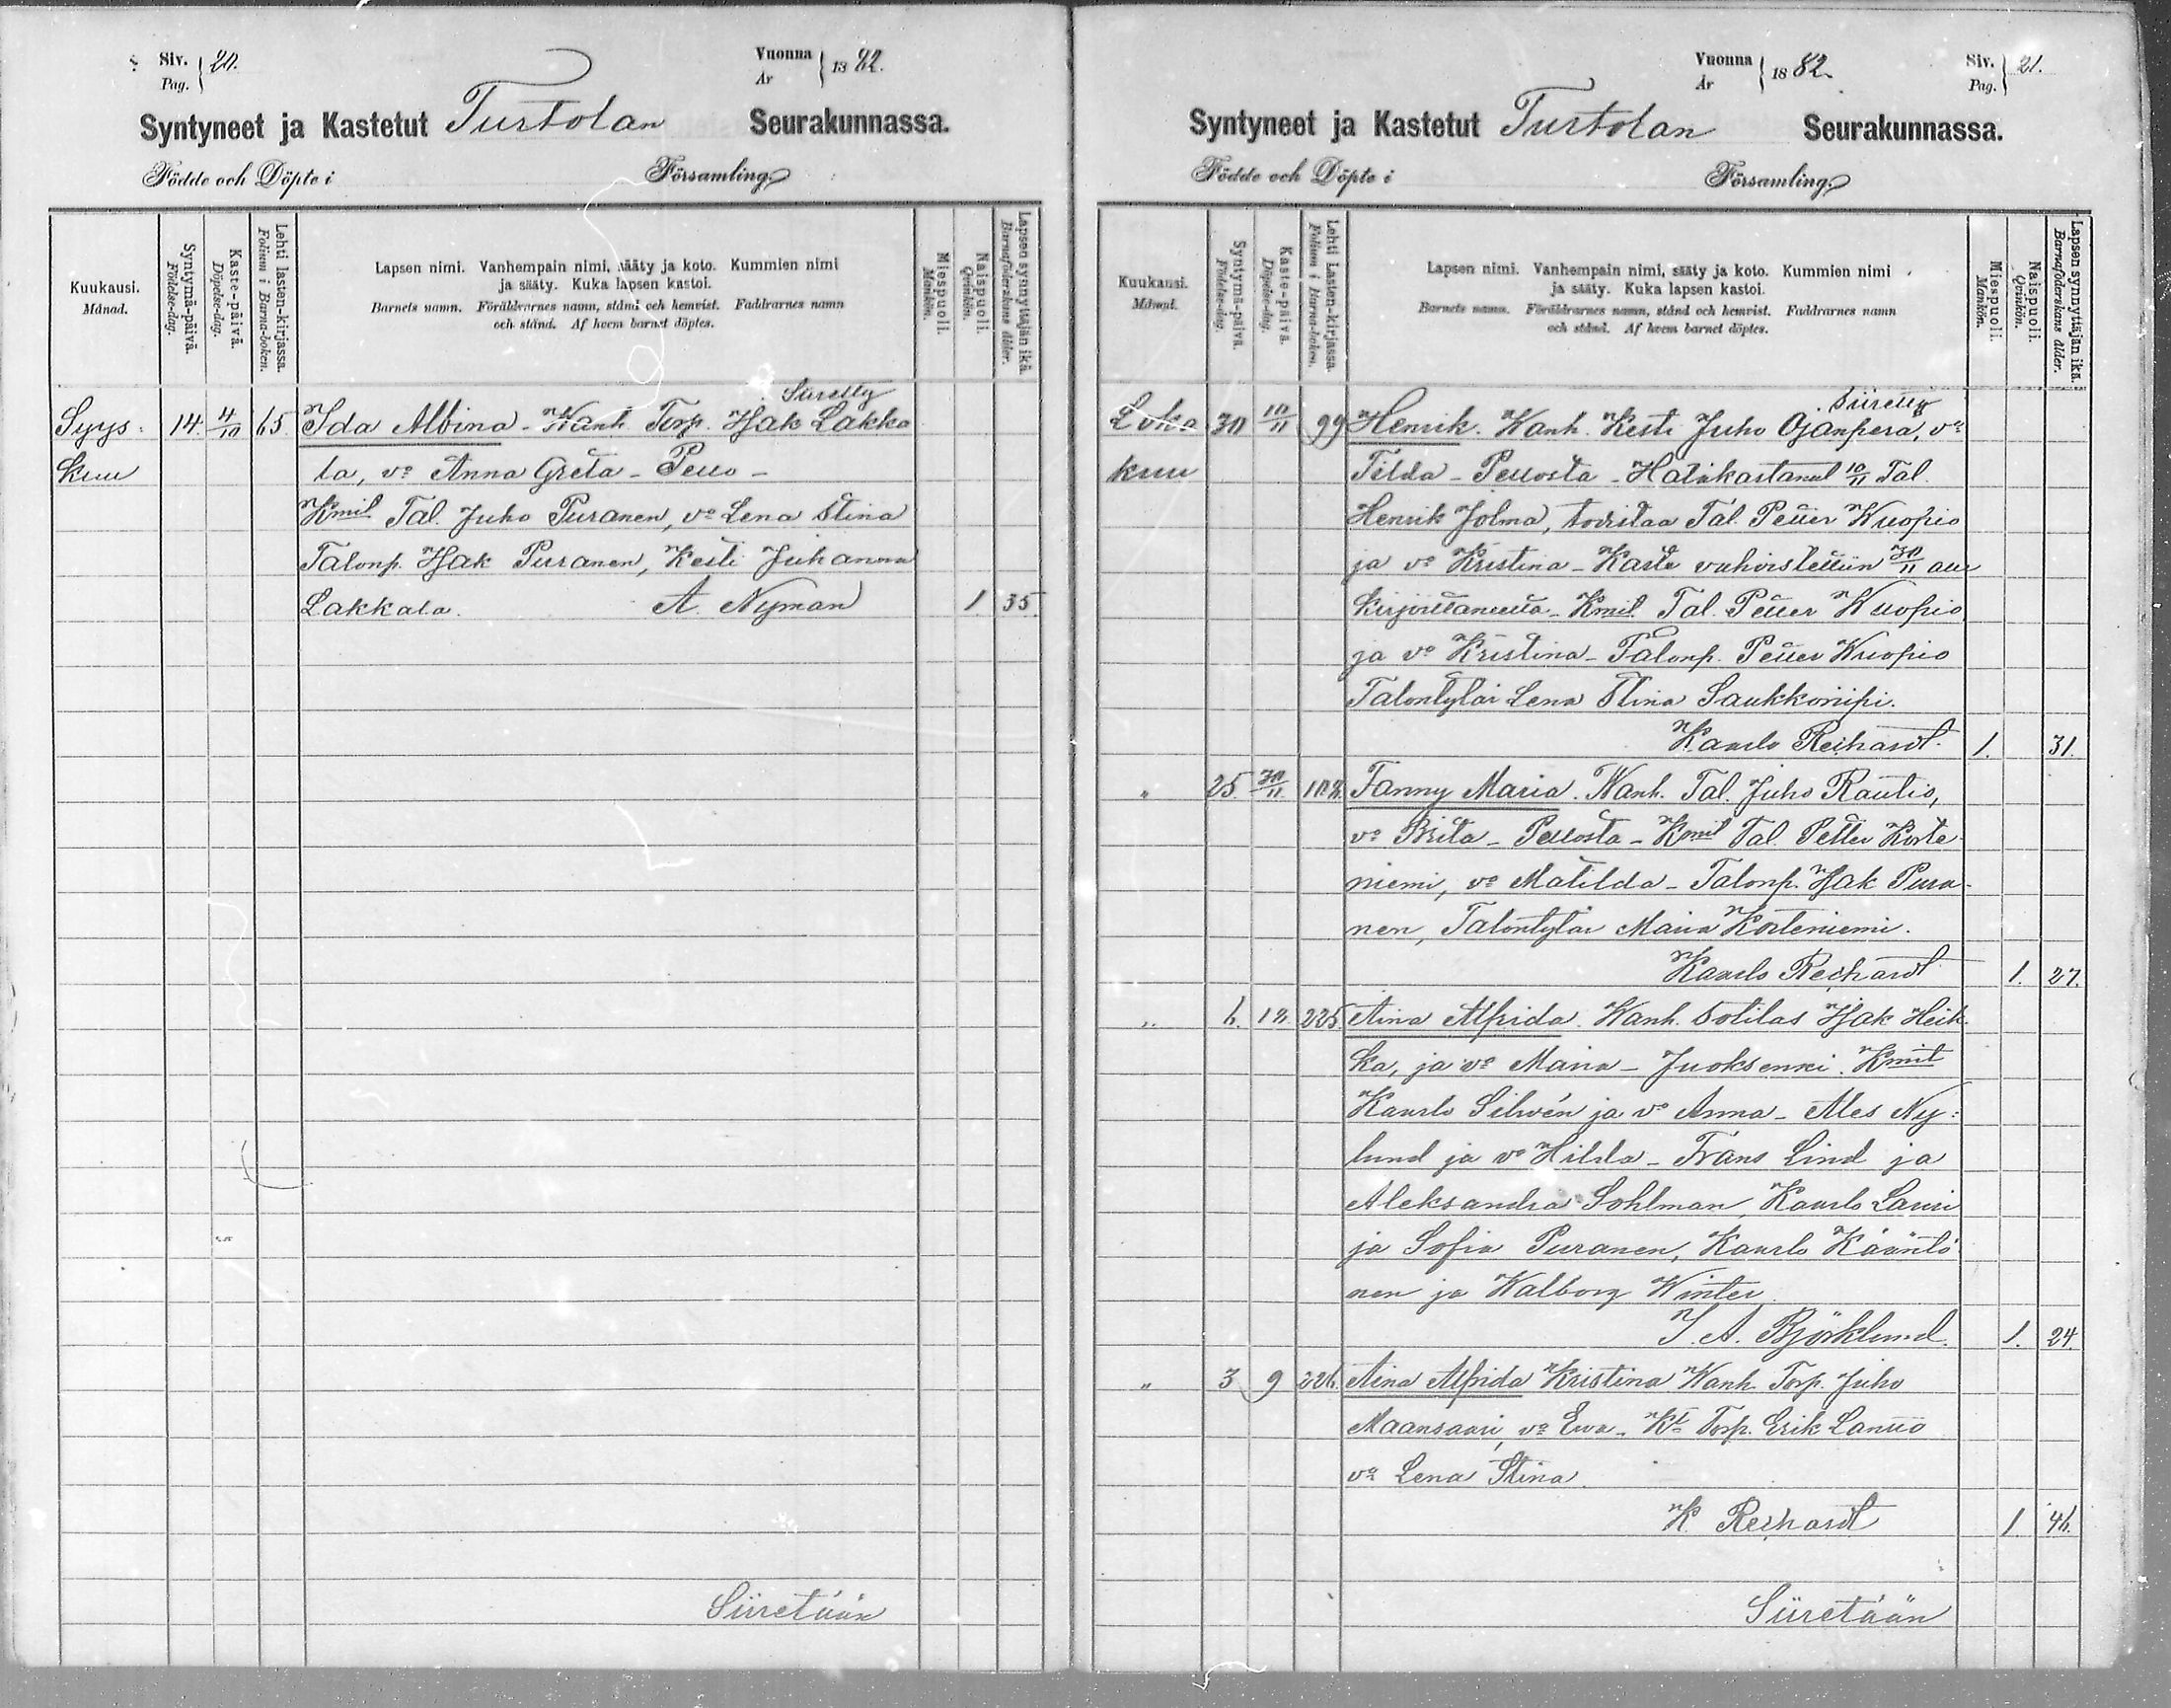 Siv. 20.
Pag.
Vuonna 1882.
År
Syntyneet ja Kastetut Turtolan Seurakunnassa.
Födde och Döpte i Församling.
Kuukausi.
Månad.
Syntymä-päivä.
Födelse-dag.
Kaste-päivä.
Döpelse-dag.
Lehti lasten-kirjassa.
Folium i Barna-boken.
Lapsen nimi. Vanhempain nimi, sääty ja koto. Kummien nimi
ja sääty. Kuka lapsen kastoi.
Barnets namn. Föräldrarnes namn, stånd och hemvist. Faddrarnes namn
och stånd. Af hvem barnet döptes.
Miespuoli.
Mankön.
Naispuoli.
Qvinkön.
Lapsen synnyttäjän ikä.
Barnaföderskans ålder.
Siiretty
Syys: 14. 4/10 65. Ida Albina - Wanh Torp. Isak Lakka
kuu la, vo Anna Greta - Pello -
Kmit Tal. Juho Puranen, vo Lena Stina
Talonp. Isak Puranen, Kesti Juhanna
Lakkala. A. Nyman 1 35.
Siiretään
Vuonna 1882.
År
Siv. 21.
Pag.
Syntyneet ja Kastetut Turtolan Seurakunnassa.
Födde och Döpte i Församling.
Kuukausi.
Månad.
Syntymä-päivä.
Födelse-dag.
Kaste-päivä.
Döpelse-dag.
Lehti Lasten-kirjassa.
Folium i Barna-boken.
Lapsen nimi. Vanhempain nimi, sääty ja koto. Kummien nimi
ja sääty. Kuka lapsen kastoi.
Barnets namn. Föräldrarnes namn, stånd och hemvist. Faddrarnes namn
och stånd. Af hvem barnet döptes.
Miespuoli.
Mankön.
Naispuoli.
Qvinkön.
Lapsen synnyttäjän ikä.
Barnaföderskans ålder.
Siiretty
Loka 30 10/11 99 Henrik. Wanh. Kesti Juho Ojanperä, vo
kuu Tilda - Pellosta - Hätäkastanut 10/11 Tal.
Henrik Jolma, todistaa Tal. Petter Kuopio
ja vo Kristina - Kaste vahvistettiin 30/11 alle
kirjoittaneelta - Kmit Tal. Petter Kuopio
ja vo Kristina - Talonp. Petter Kuopio
Talontytär Lena Stina Saukkoriipi.
Kaarlo Reihardt. 1. 31.
" 25. 30/11 102. Fanny Maria. Wanh. Tal. Juho Rautio,
vo Brita - Pellosta - Kmit Tal. Petter Korte
niemi, vo Matilda - Talonp. Isak Pura
nen, Talontytär Maria Korteniemi.
Kaarlo Reihardt 1. 27.
" 6. 12. 225. Aina Alfrida. Wanh. Sotilas Isak Heik
ka, ja vo Maria - Juoksenki. Kmit
Kaarlo Silwén ja vo Anna - Ales Ny:
lund ja vo Hilda - Frans Lind ja
Aleksandra Sohlman, Kaarlo Lauri
ja Sofia Puranen, Kaarlo Kääntö
nen ja Walborg Winter
I. A. Björklund. 1. 24.
" 3 9 226. Aina Alfrida Kristina Wanh. Torp. Juho
Maansaari, vo Ewa. Kt Torp. Erik Lantto
vo Lena Stina.
K. Reihardt 1. 46.
Siiretään